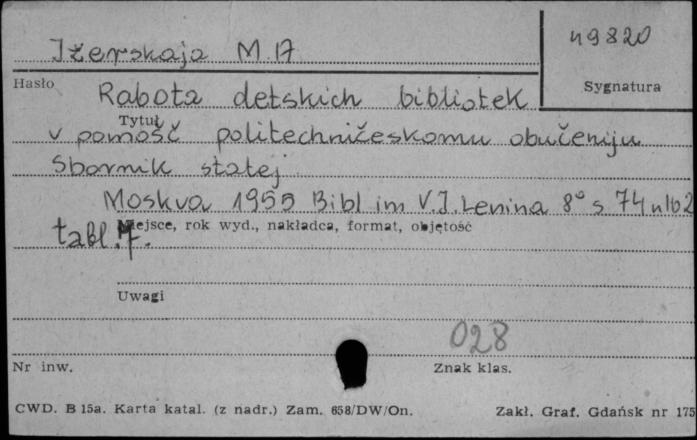 Iżerskaja M. A
49820
Hasło
Sygnatura
Rabota detskich bibliotek
Tytuł
v pomość politechničeskomu obučeniju
Sbornik statej
Moskva 1955 Bibl im V.J. Lenina 8° s 74 nlb 2
Miejsce, rok wyd., nakładca, format, objętość
tabl. 7.
Uwagi
028
Nr inw.
Znak klas.
CWD. B 15a. Karta katal. (z nadr.) Zam. 658/DW/On.
Zakł. Graf. Gdańsk nr 175